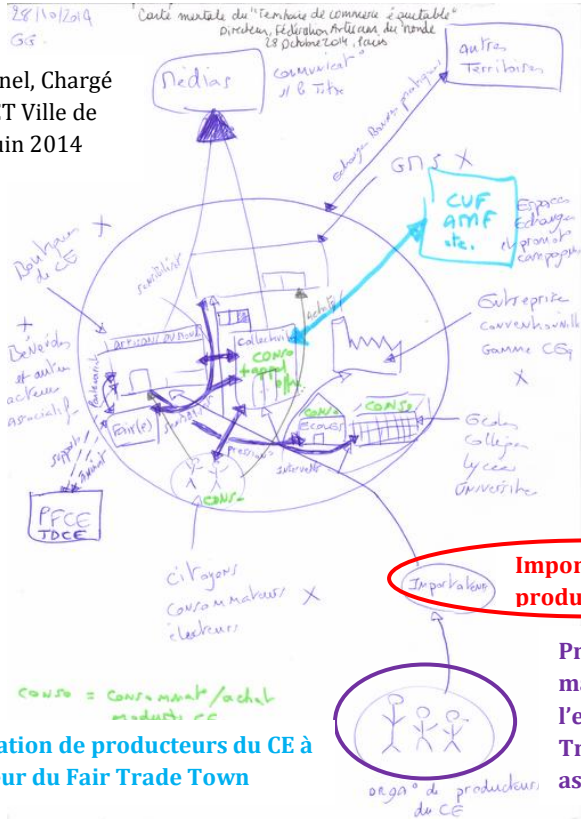 28/10/2014
GG.
"Carte mentale du "Territoire de commerce équitable"
Directeur, Fédération Artisans du monde
28 Octobre 2014, Paris
nel, Chargé
CT Ville de
uin 2014
Médias
communicat°
autres
Territoires
Echanges Bonnes pratiques
GMS X
CUF
AMF
etc.
Espaces
Echanges
et promot°
campagnes
Boutiques
de CE
X
X
Bénévoles
et autres
acteurs
associatifs
sensibilisat°
ARTISANS DU MONDE
Partenariat
Collectivité
CONSO
+ appel
offre
Achats
Entreprise
conventionnelle
Gamme CEq
X
Fair(e)
CONSO
ECOLES
CONSO
Ecoles
Collèges
Lycées
Universités
pression
CONSO
PFCE
TDCE
citoyens
consommateurs X
électeurs
Importateurs
Impor
produ
Pr
ma
l'e
Tr
as
conso = consommat°/achat
produits CE
ation de producteurs du CE à
eur du Fair Trade Town
orga° de producteurs
du CE